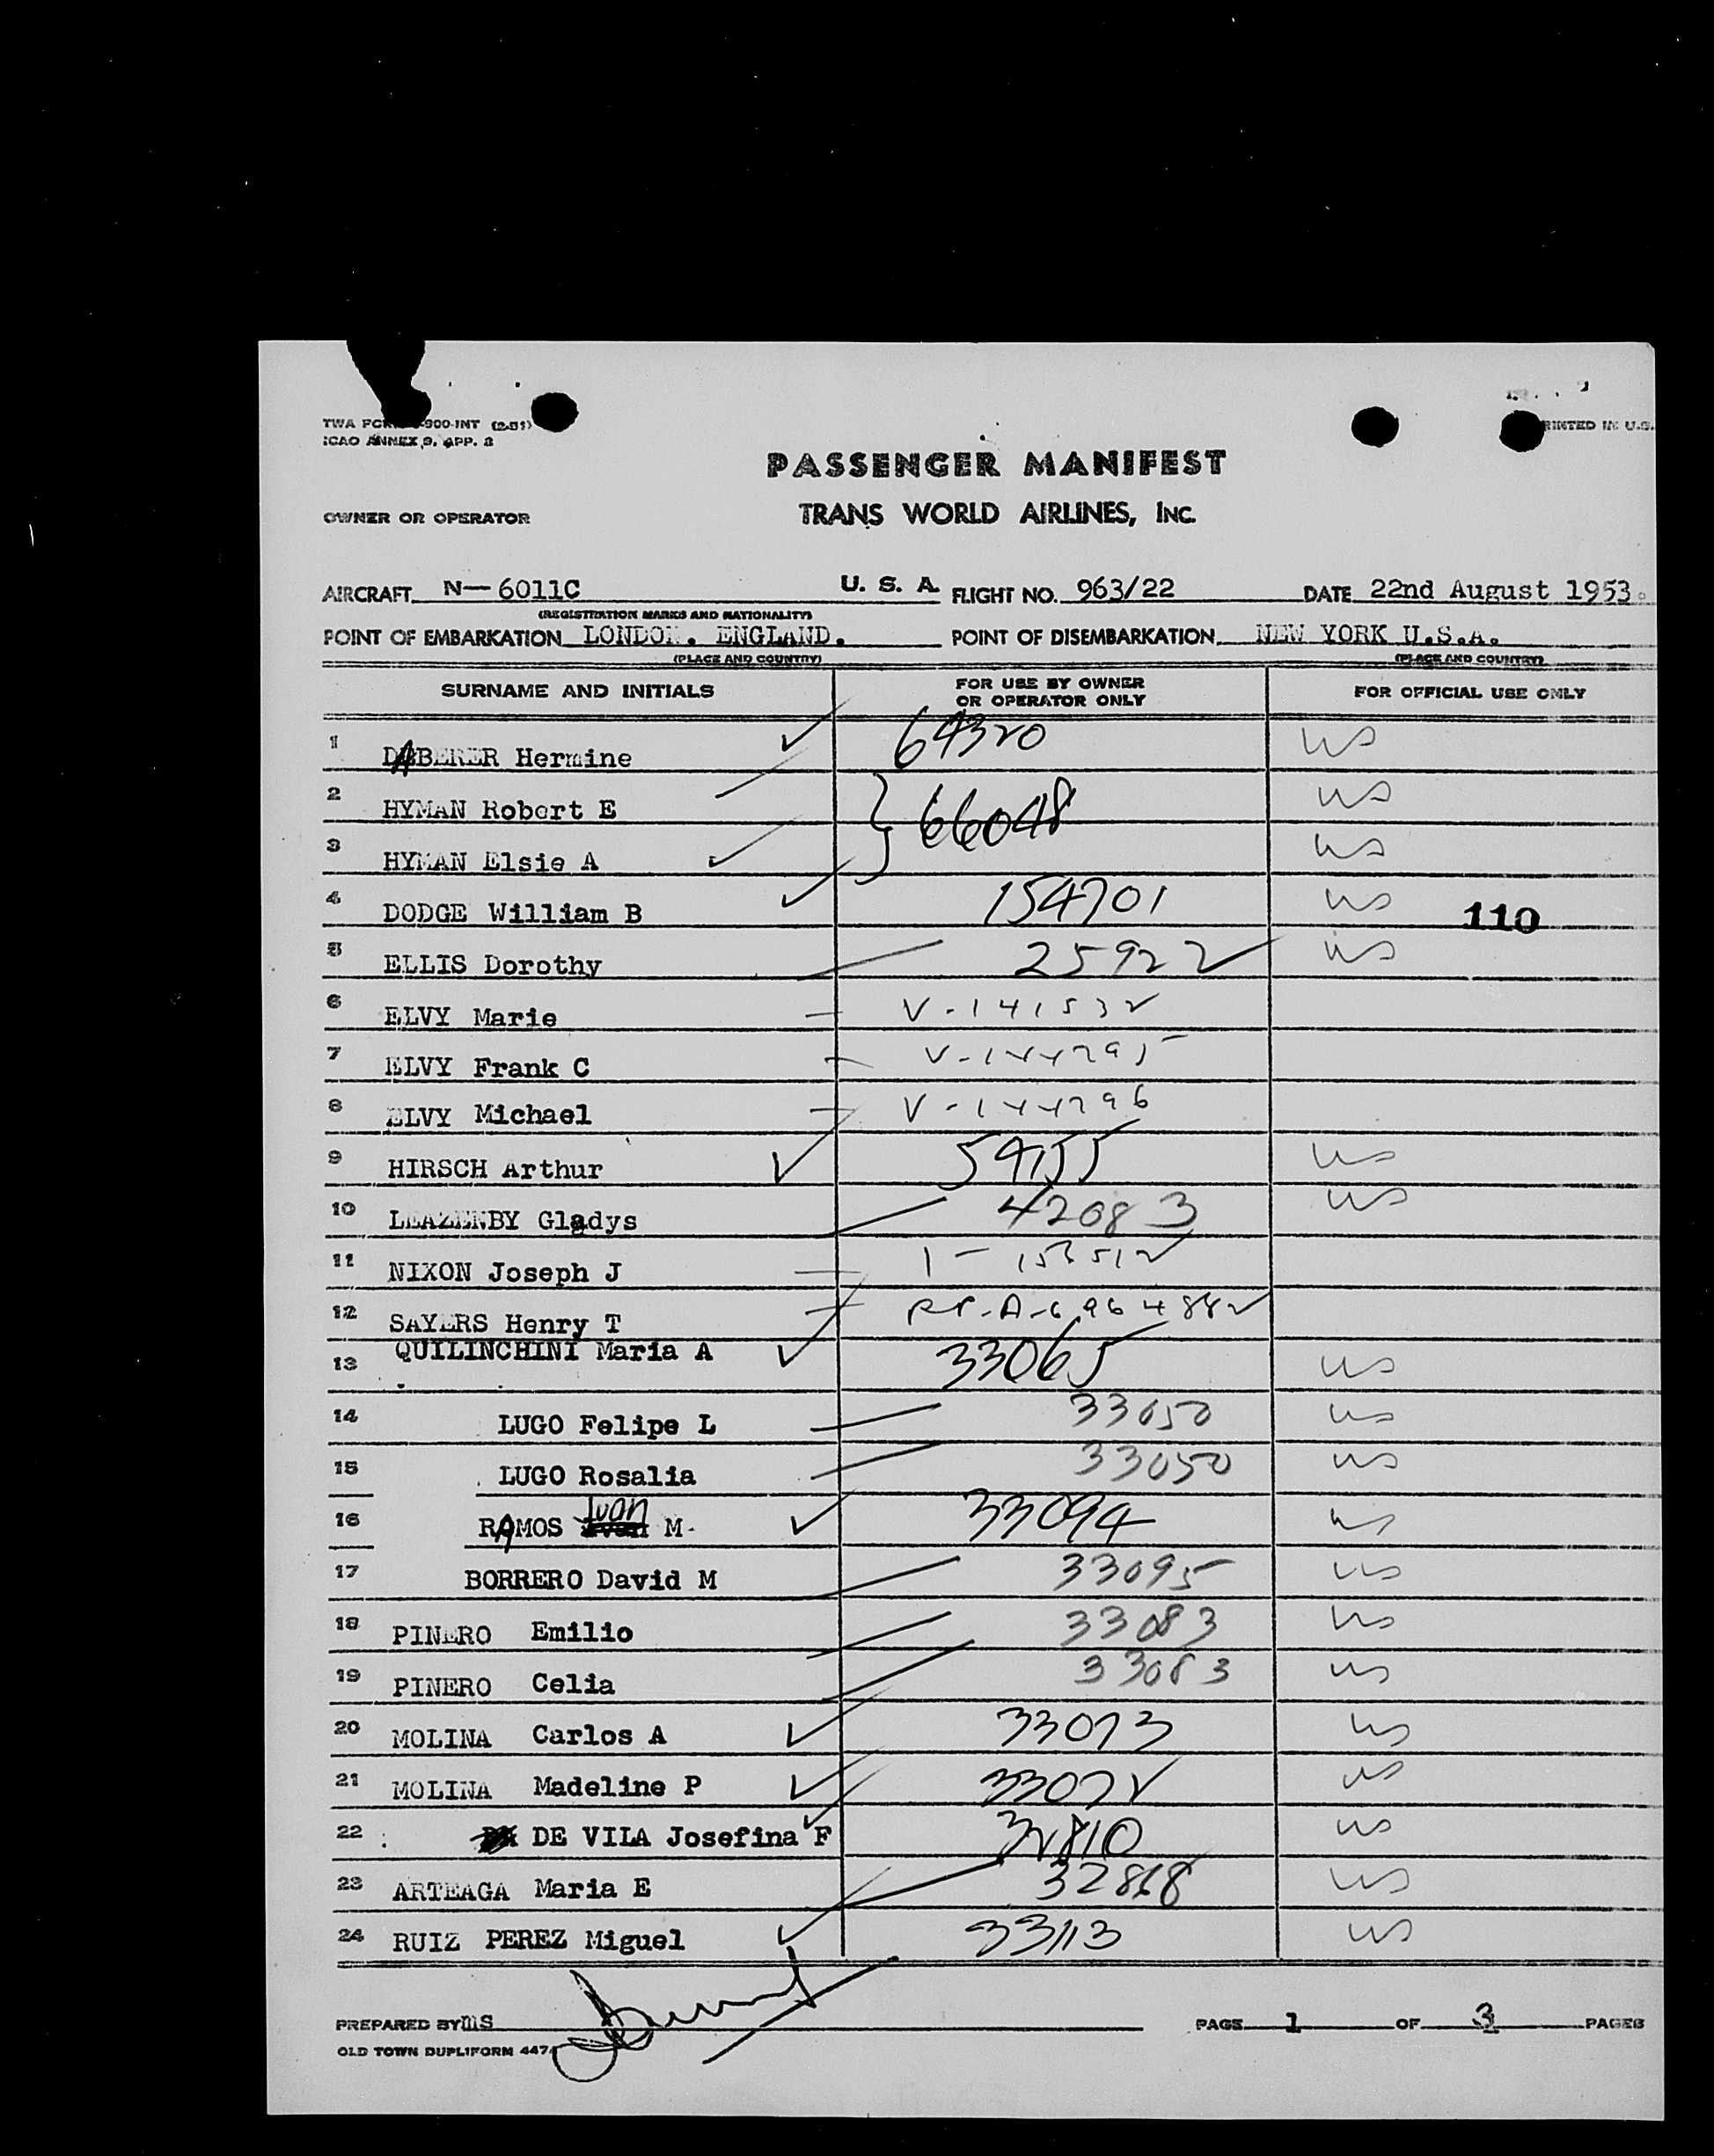 TWA FORM -900-INT (2-51)
ICAO ANNEX 9, APP. 2
PRINTED IN U.S.
PASSENGER MANIFEST
OWNER OR OPERATOR TRANS WORLD AIRLINES, INC.
AIRCRAFT N-6011C U. S. A. FLIGHT NO. 963/22 DATE 22nd August 1953.
(REGISTRATION MARKS AND NATIONALITY)
POINT OF EMBARKATION LONDON. ENGLAND. POINT OF DISEMBARKATION NEW YORK U.S.A.
(PLACE AND COUNTRY) (PLACE AND COUNTRY)
SURNAME AND INITIALS FOR USE BY OWNER OR OPERATOR ONLY FOR OFFICIAL USE ONLY
1 DABERER Hermine 64320 US
2 HYMAN Robert E 66048 US
3 HYMAN Elsie A US
4 DODGE William B 154701 US 110
5 ELLIS Dorothy 25922 US
6 ELVY Marie V-141532
7 ELVY Frank C V-144295
8 ELVY Michael V-144296
9 HIRSCH Arthur 59155 US
10 LEAZENBY Gladys 42083 US
11 NIXON Joseph J
12 SAYERS Henry T
13 QUILINCHINI Maria A 33065 US
14 LUGO Felipe L 33050 US
15 LUGO Rosalia 33050 US
16 RAMOS Juan M. 33094 US
17 BORRERO David M 33095 US
18 PINERO Emilio 33083 US
19 PINERO Celia 33083 US
20 MOLINA Carlos A 33073 US
21 MOLINA Madeline P 33072 US
22 DE VILA Josefina F 32810 US
23 ARTEAGA Maria E 32818 US
24 RUIZ PEREZ Miguel 33113 US
PREPARED BY ms PAGE 1 OF 3 PAGES
OLD TOWN DUPLIFORM 447